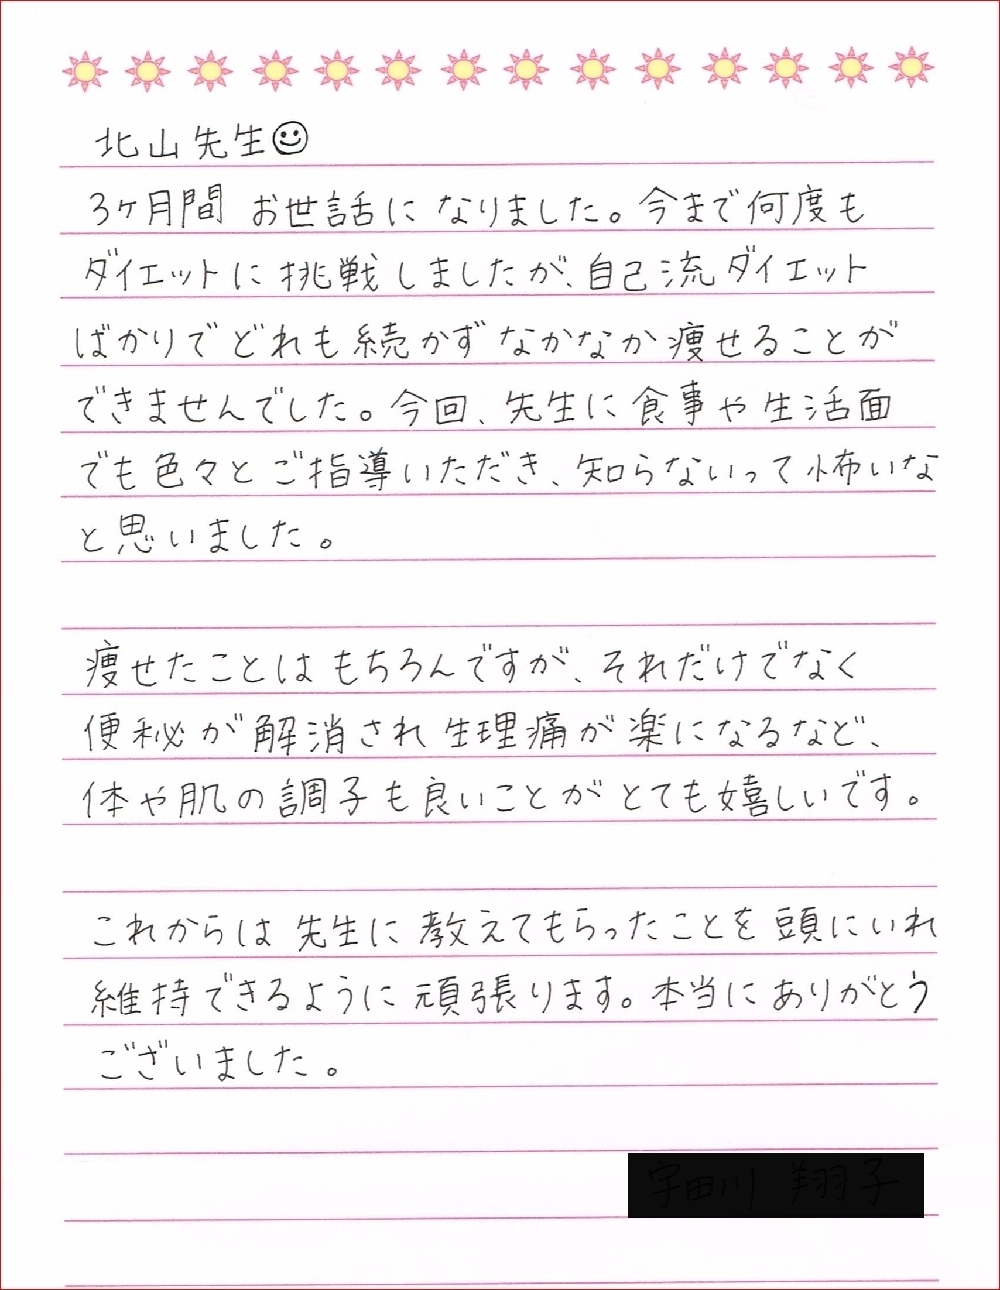 北山先生☺
3ヶ月間 お世話に なりました。今まで何度も
ダイエットに 挑戦しましたが、自己流ダイエット
ばかりで どれも続かず なかなか痩せることが
できませんでした。今回、先生に食事や生活面
でも色々と ご指導いただき、知らないって怖いな
と思いました。
痩せたことは もちろんですが、それだけでなく
便秘が解消され 生理痛が楽になるなど、
体や肌の調子も良いことが とても嬉しいです。
これからは 先生に 教えてもらったことを 頭にいれ
維持できるように 頑張ります。本当に ありがとう
ございました。